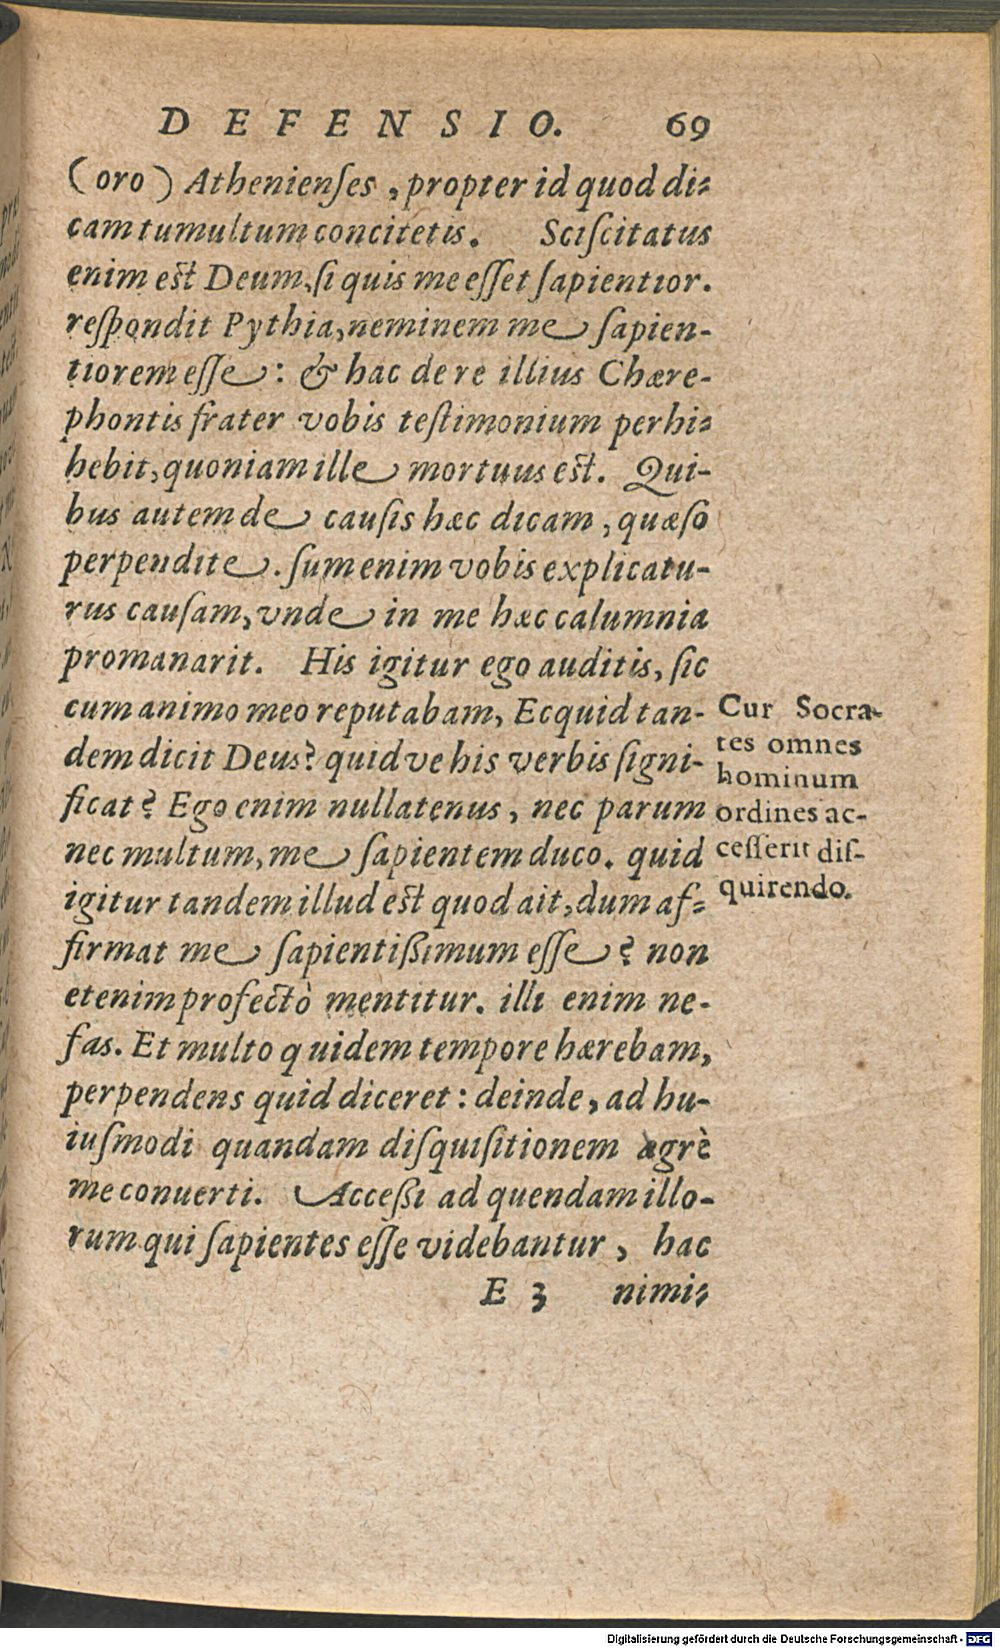 DEFENSIO. 69
(oro) Athenienſes, propter id quod di-
cam tumultum concitetis. Sciſcitatus
enim est Deum, ſi quis me eſſet ſapientior.
reſpondit Pythia, neminem me ſapien-
tiorem eſſe: & hac de re illius Chære-
phontis frater vobis teſtimonium perhi-
hebit, quoniam ille mortuus est. Qui-
bus autem de cauſis hæc dicam, quæſo
perpendite. ſum enim vobis explicatu-
rus cauſam, vnde in me hæc calumnia
promanarit. His igitur ego auditis, ſic
cum animo meo reputabam, Ecquid tan-
dem dicit Deus? quidve his verbis ſigni-
ficat? Ego enim nullatenus, nec parum
nec multum, me ſapientem duco. quid
igitur tandem illud est quod ait, dum af-
firmat me ſapientißimum eſſe? non
etenim profectò mentitur. illi enim ne-
fas. Et multo quidem tempore hærebam,
perpendens quid diceret: deinde, ad hu-
iuſmodi quandam diſquiſitionem ægrè
me conuerti. Acceßi ad quendam illo-
rum qui ſapientes eſſe videbantur, hac
E 3 nimi-
Cur Socra-
tes omnes
hominum
ordines ac-
ceſſerit diſ-
quirendo.
Digitalisierung gefördert durch die Deutsche Forschungsgemeinschaft - DFG